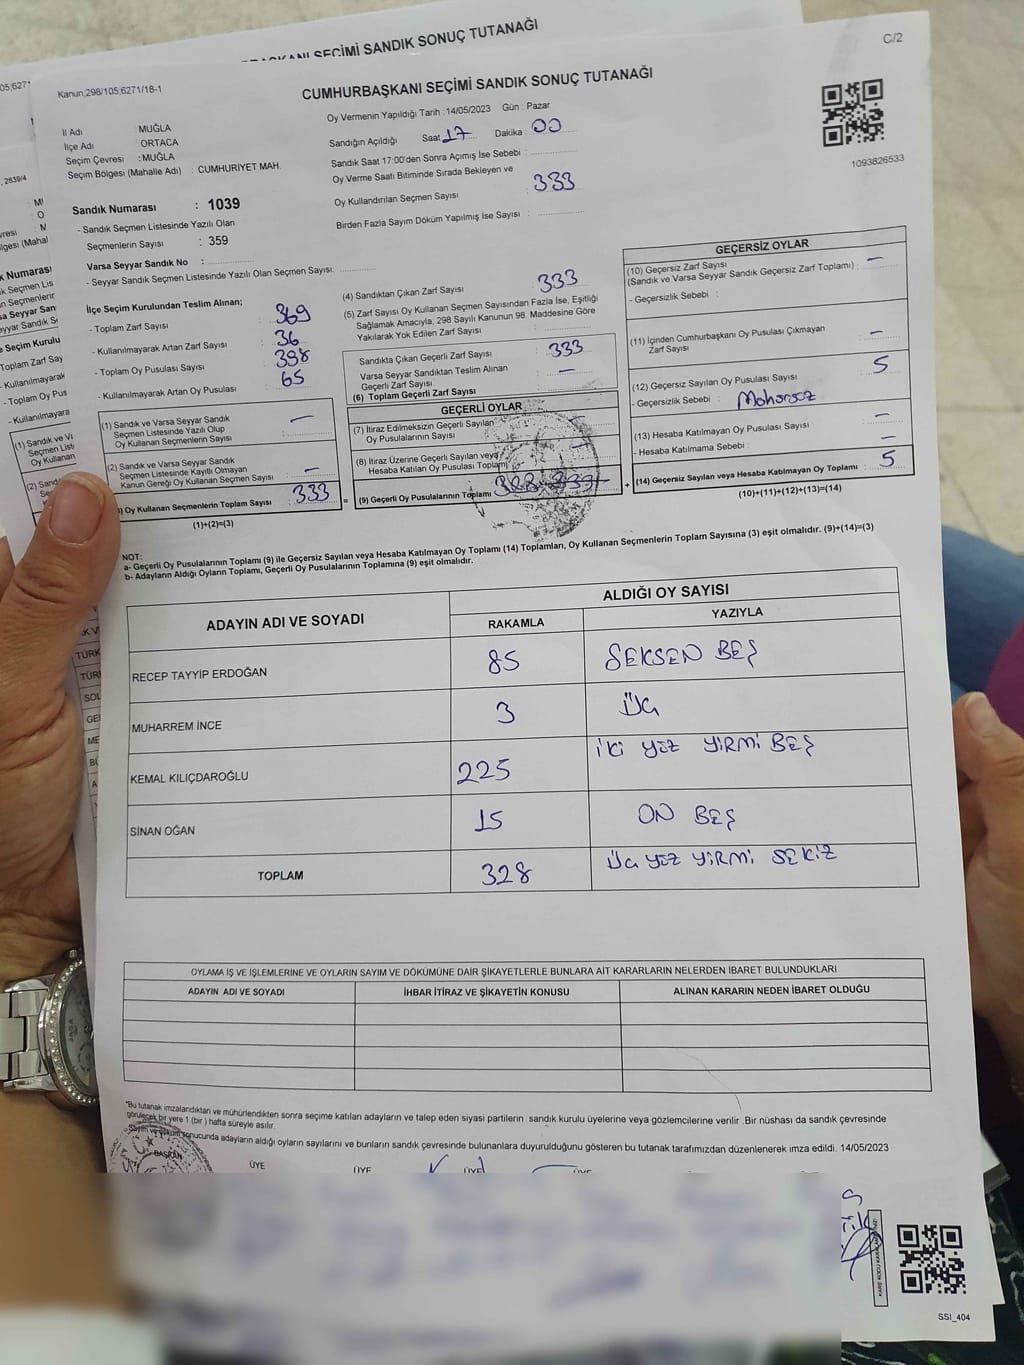 BAŞKANI SEÇİMİ SANDIK SONUÇ TUTANAĞI
C/2
Kanun,298/105;6271/18-1
CUMHURBAŞKANI SEÇİMİ SANDIK SONUÇ TUTANAĞI
İl Adı : MUĞLA
İlçe Adı : ORTACA
Seçim Çevresi : MUĞLA
Seçim Bölgesi (Mahalle Adı) : CUMHURİYET MAH.
Oy Vermenin Yapıldığı Tarih : 14/05/2023 Gün : Pazar
Sandığın Açıldığı Saat : 17 Dakika : 00
Sandık Saat 17:00'den Sonra Açımış İse Sebebi :
Oy Verme Saati Bitiminde Sırada Bekleyen ve
Oy Kullandırılan Seçmen Sayısı : 333
Birden Fazla Sayım Döküm Yapılmış İse Sayısı :
1093826533
Sandık Numarası : 1039
- Sandık Seçmen Listesinde Yazılı Olan
Seçmenlerin Sayısı : 359
Varsa Seyyar Sandık No :
- Seyyar Sandık Seçmen Listesinde Yazılı Olan Seçmen Sayısı:
İlçe Seçim Kurulundan Teslim Alınan;
- Toplam Zarf Sayısı : 369
- Kullanılmayarak Artan Zarf Sayısı : 36
- Toplam Oy Pusulası Sayısı : 398
- Kullanılmayarak Artan Oy Pusulası : 65
(1) Sandık ve Varsa Seyyar Sandık
Seçmen Listesinde Yazılı Olup
Oy Kullanan Seçmenlerin Sayısı : —
(2) Sandık ve Varsa Seyyar Sandık
Seçmen Listesinde Kayıtlı Olmayan
Kanun Gereği Oy Kullanan Seçmen Sayısı : —
) Oy Kullanan Seçmenlerin Toplam Sayısı : 333
(1)+(2)=(3)
(4) Sandıktan Çıkan Zarf Sayısı : 333
(5) Zarf Sayısı Oy Kullanan Seçmen Sayısından Fazla İse, Eşitliği
Sağlamak Amacıyla, 298 Sayılı Kanunun 98. Maddesine Göre
Yakılarak Yok Edilen Zarf Sayısı :
Sandıkta Çıkan Geçerli Zarf Sayısı : 333
Varsa Seyyar Sandıktan Teslim Alınan
Geçerli Zarf Sayısı : —
(6) Toplam Geçerli Zarf Sayısı
GEÇERLİ OYLAR
(7) İtiraz Edilmeksizin Geçerli Sayılan
Oy Pusulalarının Sayısı
(8) İtiraz Üzerine Geçerli Sayılan veya
Hesaba Katılan Oy Pusulası Toplamı
(9) Geçerli Oy Pusulalarının Toplamı 328 333
GEÇERSİZ OYLAR
(10) Geçersiz Zarf Sayısı
(Sandık ve Varsa Seyyar Sandık Geçersiz Zarf Toplamı) : —
- Geçersizlik Sebebi :
(11) İçinden Cumhurbaşkanı Oy Pusulası Çıkmayan
Zarf Sayısı : —
(12) Geçersiz Sayılan Oy Pusulası Sayısı : 5
- Geçersizlik Sebebi : Mühürsüz
(13) Hesaba Katılmayan Oy Pusulası Sayısı : —
- Hesaba Katılmama Sebebi : —
(14) Geçersiz Sayılan veya Hesaba Katılmayan Oy Toplamı : 5
(10)+(11)+(12)+(13)=(14)
NOT:
a- Geçerli Oy Pusulalarının Toplamı (9) ile Geçersiz Sayılan veya Hesaba Katılmayan Oy Toplamı (14) Toplamları, Oy Kullanan Seçmenlerin Toplam Sayısına (3) eşit olmalıdır. (9)+(14)=(3)
b- Adayların Aldığı Oyların Toplamı, Geçerli Oy Pusulalarının Toplamına (9) eşit olmalıdır.
ADAYIN ADI VE SOYADI ALDIĞI OY SAYISI
RAKAMLA YAZIYLA
RECEP TAYYİP ERDOĞAN 85 SEKSEN BEŞ
MUHARREM İNCE 3 ÜÇ
KEMAL KILIÇDAROĞLU 225 İKİ YÜZ YİRMİ BEŞ
SİNAN OĞAN 15 ON BEŞ
TOPLAM 328 ÜÇ YÜZ YİRMİ SEKİZ
OYLAMA İŞ VE İŞLEMLERİNE VE OYLARIN SAYIM VE DÖKÜMÜNE DAİR ŞİKAYETLERLE BUNLARA AİT KARARLARIN NELERDEN İBARET BULUNDUKLARI
ADAYIN ADI VE SOYADI İHBAR İTİRAZ VE ŞİKAYETİN KONUSU ALINAN KARARIN NEDEN İBARET OLDUĞU
"Bu tutanak imzalandıktan ve mühürlendikten sonra seçime katılan adayların ve talep eden siyasi partilerin sandık kurulu üyelerine veya gözlemcilerine verilir. Bir nüshası da sandık çevresinde
görülecek bir yere 1 (bir) hafta süreyle asılır.
Sayım ve döküm sonucunda adayların aldığı oyların sayılarını ve bunların sandık çevresinde bulunanlara duyurulduğunu gösteren bu tutanak tarafımızdan düzenlenerek imza edildi. 14/05/2023
BAŞKAN ÜYE ÜYE ÜYE ÜYE
SSI_404